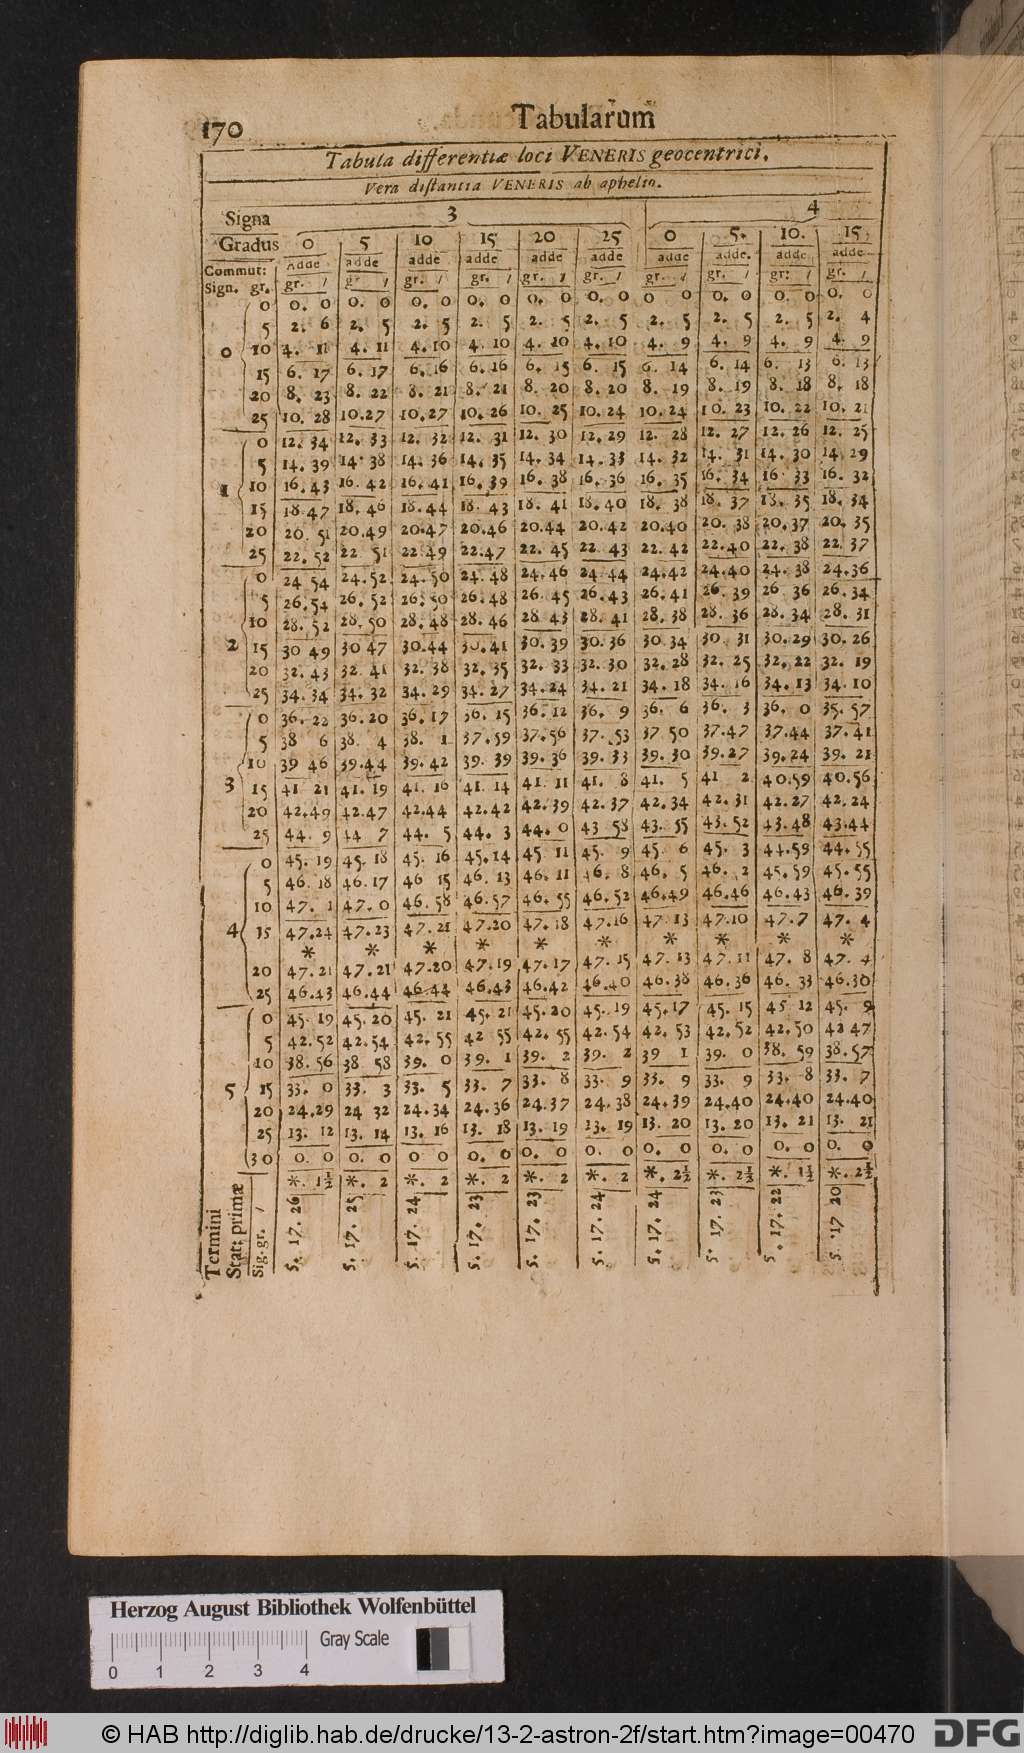 170 Tabularum
Tabula differentiæ loci VENERIS geocentrici.
Vera distantia VENERIS ab aphelio.
Signa 3 4
Gradus 0 5 10 15 20 25 0 5. 10. 15
Adde adde adde adde adde adde adde adde. adde adde
Commut: gr. / gr / gr. / gr. / gr. / gr. / gr. / gr. / gr: / gr. /
Sign. gr.
0 0. 0 0. 0 0. 0 0. 0 0. 0 0. 0 0 0 0. 0 0. 0 0. 0
5 2. 6 2. 5 2. 5 2. 5 2. 5 2. 5 2. 5 2. 5 2. 5 2. 4
0 10 4. 11 4. 11 4. 10 4. 10 4. 10 4. 10 4. 9 4. 9 4. 9 4. 9
15 6. 17 6. 17 6. 16 6. 16 6. 15 6. 15 6. 14 6. 14 6. 13 6. 13
20 8. 23 8. 22 8. 21 8. 21 8. 20 8. 20 8. 19 8. 19 8. 18 8. 18
25 10. 28 10.27 10.27 10. 26 10. 25 10. 24 10. 24 10. 23 10. 22 10. 21
0 12. 34 12. 33 12. 32 12. 31 12. 30 12. 29 12. 28 12. 27 12. 26 12. 25
5 14. 39 14. 38 14. 36 14. 35 14. 34 14. 33 14. 32 14. 31 14. 30 14. 29
1 10 16. 43 16. 42 16. 41 16. 39 16. 38 16. 36 16. 35 16. 34 16. 33 16. 32
15 18.47 18. 46 18.44 18. 43 18. 41 18. 40 18. 38 18. 37 18. 35 18. 34
20 20. 51 20.49 20.47 20.46 20.44 20.42 20.40 20. 38 20.37 20. 35
25 22. 52 22 51 22.49 22.47 22. 45 22. 43 22. 42 22.40 22. 38 22. 37
0 24 54 24.52 24. 50 24. 48 24.46 24 44 24.42 24.40 24. 38 24.36
5 26.54 26. 52 26. 50 26.48 26. 45 26.43 26.41 26. 39 26 36 26. 34
10 28. 52 28. 50 28. 48 28. 46 28 43 28. 41 28. 38 28. 36 28. 34 28. 31
2 15 30 49 30 47 30.44 30.41 30. 39 30. 36 30 34 30. 31 30.29 30. 26
20 32. 43 32 41 32. 38 32. 35 32. 33 32. 30 32. 28 32. 25 32. 22 32. 19
25 34. 34 34. 32 34. 29 34. 27 34.24 34. 21 34. 18 34. 16 34. 13 34. 10
0 36. 22 36. 20 36. 17 36. 15 36. 12 36. 9 36. 6 36. 3 36. 0 35. 57
5 38 6 38. 4 38. 1 37.59 37.56 37. 53 37 50 37.47 37.44 37.41
10 39 46 39.44 39. 42 39. 39 39. 36 39. 33 39. 30 39.27 39.24 39. 21
3 15 41 21 41. 19 41. 16 41. 14 41. 11 41. 8 41. 5 41 2 40.59 40.56
20 42.49 42.47 42.44 42.42 42.39 42.37 42.34 42. 31 42.27 42.24
25 44. 9 44 7 44. 5 44. 3 44. 0 43 58 43. 55 43. 52 43.48 43.44
0 45. 19 45. 18 45. 16 45.14 45 11 45. 9 45. 6 45. 3 44.59 44.55
5 46. 18 46.17 46 15 46. 13 46. 11 46. 8 46. 5 46. 2 45.59 45.55
10 47. 1 47. 0 46. 58 46.57 46. 55 46. 52 46.49 46.46 46.43 46.39
4 15 47.24 47.23 47. 21 47.20 47.18 47.16 47. 13 47.10 47.7 47. 4
* * * * * * * * * *
20 47. 21 47.21 47.20 47.19 47.17 47. 15 47. 13 47. 11 47. 8 47. 4
25 46.43 46.44 46.44 46.43 46.42 46.40 46.38 46.36 46. 33 46.30
0 45. 19 45. 20 45. 21 45. 21 45.20 45. 19 45.17 45. 15 45 12 45. 9
5 42.52 42.54 42. 55 42 55 42. 55 42.54 42. 53 42.52 42.50 42 47
10 38. 56 38 58 39. 0 39. 1 39. 2 39. 2 39 1 39. 0 38. 59 38.57
5 15 33. 0 33. 3 33. 5 33. 7 33. 8 33. 9 33. 9 33. 9 33. 8 33. 7
20 24.29 24 32 24.34 24.36 24.37 24. 38 24.39 24.40 24.40 24.40
25 13. 12 13. 14 13. 16 13. 18 13. 19 13. 19 13. 20 13. 20 13. 21 13. 21
30 0. 0 0. 0 0 0 0. 0 0. 0 0. 0 0. 0 0. 0 0. 0 0. 0
*. 1½ *. 2 *. 2 *. 2 *. 2 *. 2 *. 2½ *. 2½ *. 1½ *. 2½
Termini
Stat: primæ
Sig. gr. /
5. 17. 26 5. 17. 25 5. 17. 24 5. 17. 23 5. 17. 23 5. 17. 24 5. 17. 24 5. 17. 23 5. 17. 22 5. 17 20
Herzog August Bibliothek Wolfenbüttel
Gray Scale
0 1 2 3 4
© HAB http://diglib.hab.de/drucke/13-2-astron-2f/start.htm?image=00470 DFG